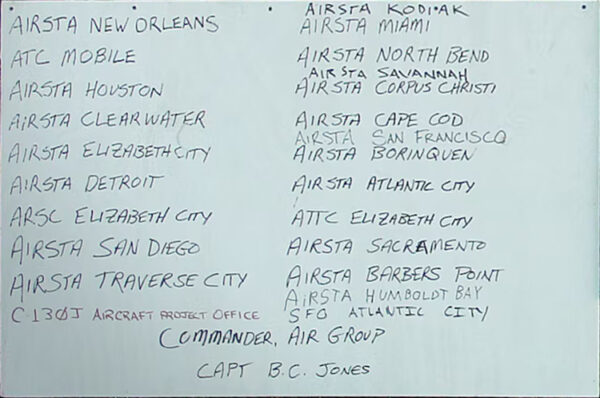 AIRSTA NEW ORLEANS
ATC MOBILE
AIRSTA HOUSTON
AIRSTA CLEARWATER
AIRSTA ELIZABETH CITY
AIRSTA DETROIT
ARSC ELIZABETH CITY
AIRSTA SAN DIEGO
AIRSTA TRAVERSE CITY
C-130J AIRCRAFT PROJECT OFFICE
AIRSTA KODIAK
AIRSTA MIAMI
AIRSTA NORTH BEND
AIRSTA SAVANNAH
AIRSTA CORPUS CHRISTI
AIRSTA CAPE COD
AIRSTA SAN FRANCISCO
AIRSTA BORINQUEN
AIRSTA ATLANTIC CITY
ATTC ELIZABETH CITY
AIRSTA SACRAMENTO
AIRSTA BARBERS POINT
AIRSTA HUMBOLDT BAY
SFO ATLANTIC CITY
COMMANDER, AIR GROUP
CAPT B.C. JONES